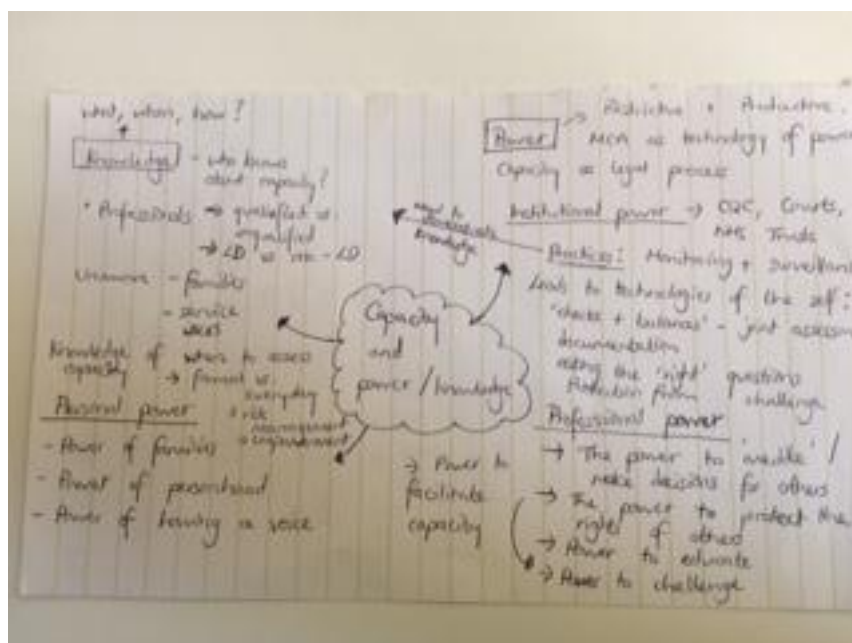 what, when, how?
Knowledge - who knows
about capacity?
Professionals → qualified vs.
unqualified
→ LD vs non-LD
- families
- service
users
Knowledge of when to assess
capacity → formal vs.
everyday
+ risk
management
→ empowerment
Personal power
- Power of families
- Power of personhood
- Power of having a voice
need to
knowledge
Capacity
and
power/knowledge
→ Power to
facilitate
capacity
Power → Restrictive + Productive.
MCA as technology of power
Capacity as legal process
Institutional power → CQC, Courts,
NHS Trusts
Practices: Monitoring + Surveillance
Leads to technologies of the self:
'checks + balances' - joint assessm
documentation
asking the 'right' questions
Protection from challenge
Professional power
→ The power to /
make decisions for others
→ The power to protect the
rights of others
→ Power to educate
→ Power to challenge